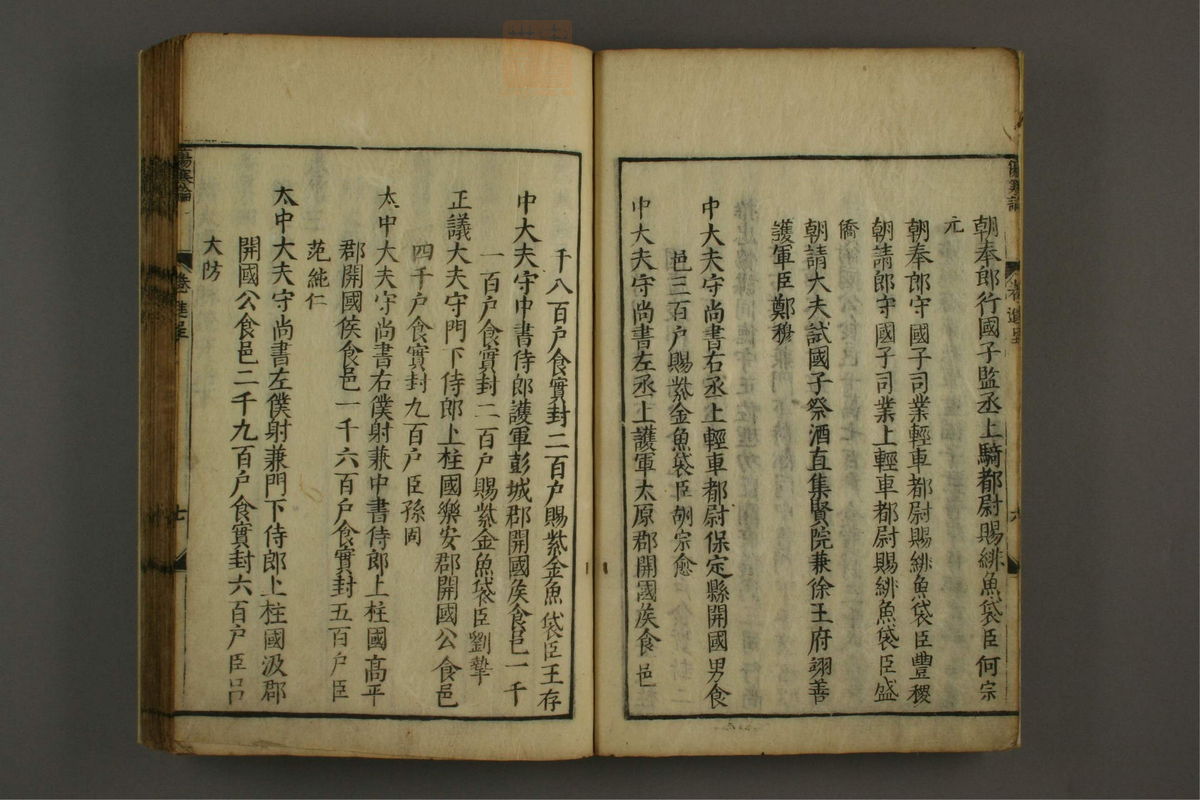 朝奉郎行國子監丞上騎都尉賜緋魚袋臣何宗
元
朝奉郎守國子司業輕車都尉賜緋魚袋臣豐稷
朝請郎守國子司業上輕車都尉賜緋魚袋臣盛
僑
朝請大夫試國子祭酒直集賢院兼徐王府翊善
護軍臣鄭穆
中大夫守尚書右丞上輕車都尉保定縣開國男食
邑三百户賜紫金魚袋臣胡宗愈
中大夫守尚書左丞上護軍太原郡開國侯食邑一
千八百户食實封二百户賜紫金魚袋臣王存
中大夫守中書侍郎護軍彭城郡開國侯食邑一千
一百户食實封二百户賜紫金魚袋臣劉摯
正議大夫守門下侍郎上柱國樂安郡開國公食邑
四千户食實封九百户臣孫固
太中大夫守尚書右僕射兼中書侍郎上柱國高平
郡開國侯食邑一千六百户食實封五百户臣
范純仁
太中大夫守尚書左僕射兼門下侍郎上柱國汲郡
開國公食邑二千九百户食實封六百户臣呂
大防
傷寒論
七